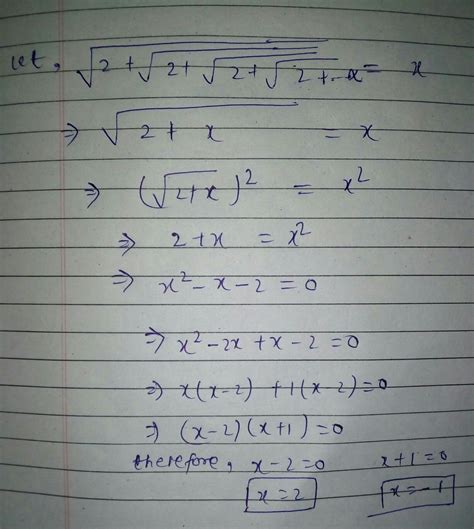 let, √2+√2+√2+√2+..∝ = x
⇒ √2+x = x
⇒ (√2+x)² = x²
⇒ 2+x = x²
⇒ x²-x-2=0
⇒ x²-2x+x-2=0
⇒ x(x-2)+1(x-2)=0
⇒ (x-2)(x+1)=0
therefore, x-2=0 x+1=0
x=2 x=-1